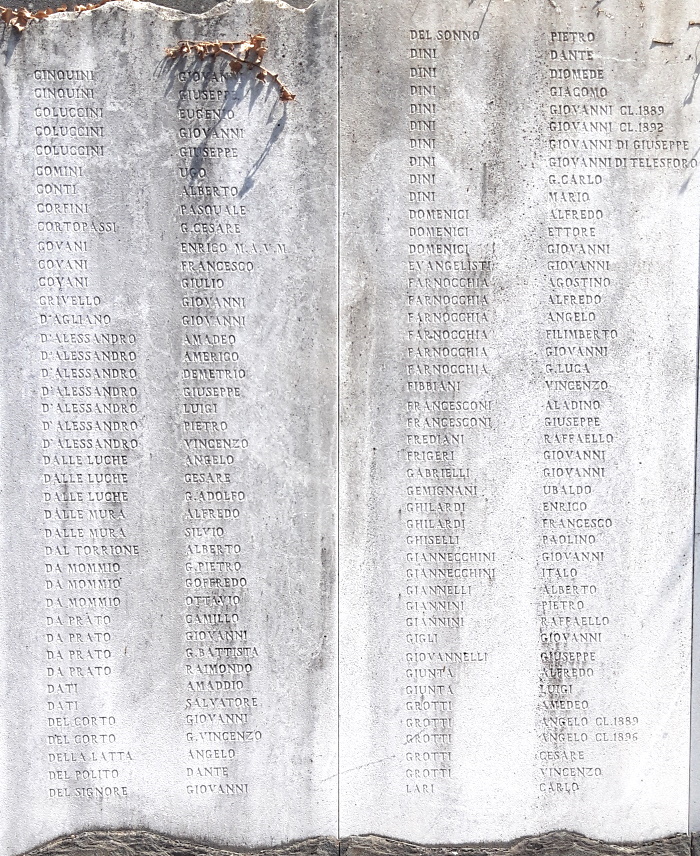 CINQUINI GIOVANNI
CINQUINI GIUSEPPE
COLUCCINI EUGENIO
COLUCCINI GIOVANNI
COLUCCINI GIUSEPPE
COMINI UGO
CONTI ALBERTO
CORFINI PASQUALE
CORTOPASSI G.CESARE
COVANI ENRICO M.A.V.M.
COVANI FRANCESCO
COVANI GIULIO
CRIVELLO GIOVANNI
D'AGLIANO GIOVANNI
D'ALESSANDRO AMADEO
D'ALESSANDRO AMERIGO
D'ALESSANDRO DEMETRIO
D'ALESSANDRO GIUSEPPE
D'ALESSANDRO LUIGI
D'ALESSANDRO PIETRO
D'ALESSANDRO VINCENZO
DALLE LUCHE ANGELO
DALLE LUCHE CESARE
DALLE LUCHE G.ADOLFO
DALLE MURA ALFREDO
DALLE MURA SILVIO
DAL TORRIONE ALBERTO
DA MOMMIO G.PIETRO
DA MOMMIO GOFFREDO
DA MOMMIO OTTAVIO
DA PRATO CAMILLO
DA PRATO GIOVANNI
DA PRATO G.BATTISTA
DA PRATO RAIMONDO
DATI AMADDIO
DATI SALVATORE
DEL CORTO GIOVANNI
DEL CORTO G.VINCENZO
DELLA LATTA ANGELO
DEL POLITO DANTE
DEL SIGNORE GIOVANNI
DEL SONNO PIETRO
DINI DANTE
DINI DIOMEDE
DINI GIACOMO
DINI GIOVANNI CL.1889
DINI GIOVANNI CL.1892
DINI GIOVANNI DI GIUSEPPE
DINI GIOVANNI DI TELESFORO
DINI G.CARLO
DINI MARIO
DOMENICI ALFREDO
DOMENICI ETTORE
DOMENICI GIOVANNI
EVANGELISTI GIOVANNI
FARNOCCHIA AGOSTINO
FARNOCCHIA ALFREDO
FARNOCCHIA ANGELO
FARNOCCHIA FILIMBERTO
FARNOCCHIA GIOVANNI
FARNOCCHIA G.LUCA
FIBBIANI VINCENZO
FRANCESCONI ALADINO
FRANCESCONI GIUSEPPE
FREDIANI RAFFAELLO
FRIGERI GIOVANNI
GABRIELLI GIOVANNI
GEMIGNANI UBALDO
GHILARDI ENRICO
GHILARDI FRANCESCO
GHISELLI PAOLINO
GIANNECCHINI GIOVANNI
GIANNECCHINI ITALO
GIANNELLI ALBERTO
GIANNINI PIETRO
GIANNINI RAFFAELLO
GIGLI GIOVANNI
GIOVANNELLI GIUSEPPE
GIUNTA ALFREDO
GIUNTA LUIGI
GROTTI AMEDEO
GROTTI ANGELO CL.1889
GROTTI ANGELO CL.1896
GROTTI CESARE
GROTTI VINCENZO
LARI CARLO